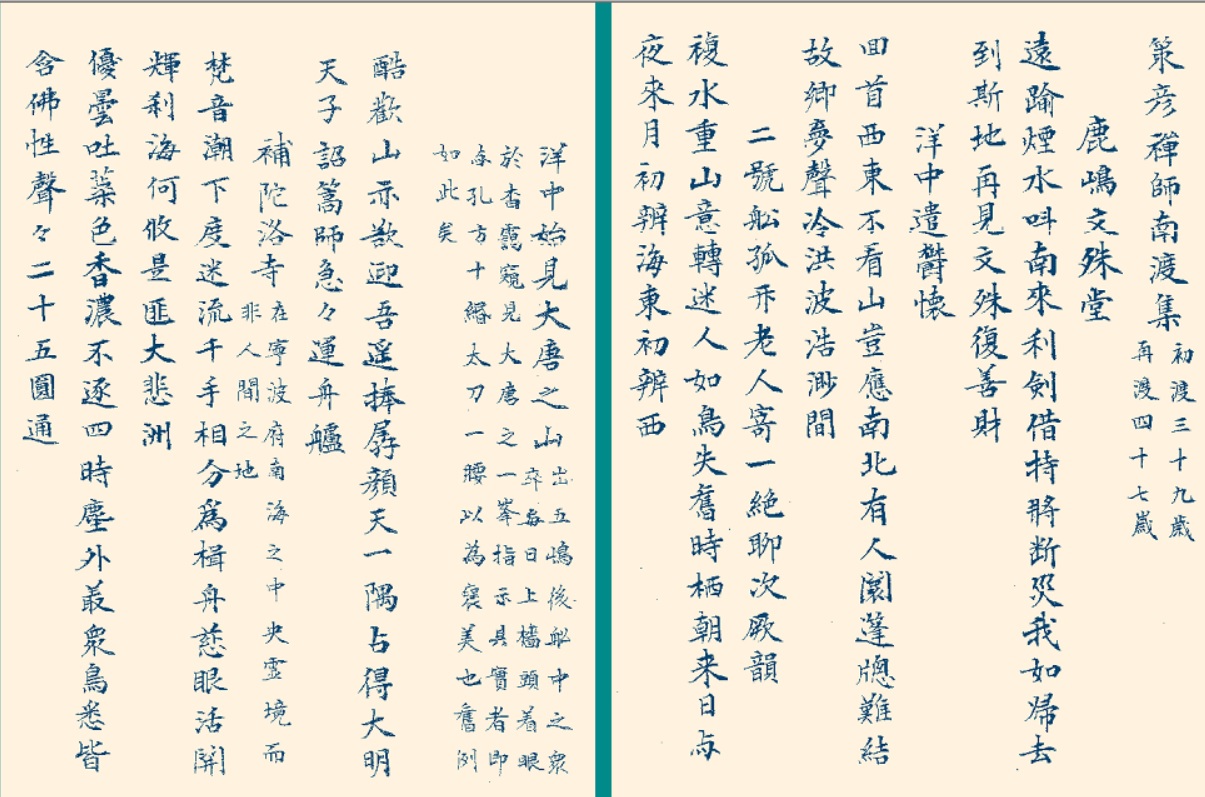 策彦禪師南渡集
初渡三十九歳
再渡四十七歳
鹿嶋文殊堂
遠踰煙水叫南來利劍借持將断災我如歸去
到斯地再見文殊復善財
洋中遣鬱懷
囬首西東不看山豈應南北有人闤篷牕難結
故郷夢聲冷洪波浩渺間
二號舩孤帋老人寄一絶聊次厥韻
複水重山意轉迷人如鳥失舊時栖朝来日与
夜來月初辨海東初辨西
洋中始見大唐之山
出五嶋後舩中之衆
卒每日上檣頭着眼
於杳靄窺見大唐之一峯指示具實者即
与孔方十緡太刀一腰以為褒美也舊例
如此矣
酷歡山亦欲迎吾遥捧孱顔天一隅占得大明
天子詔篙師急々運舟艫
補陀洛寺
在寧波府南海之中央霊境而
非人間之地
梵音潮下度迷流千手相分爲楫舟慈眼活開
輝刹海何攸是匪大悲洲
優曇吐葉色香濃不逐四時塵外最衆鳥悉皆
含佛性聲々二十五圓通